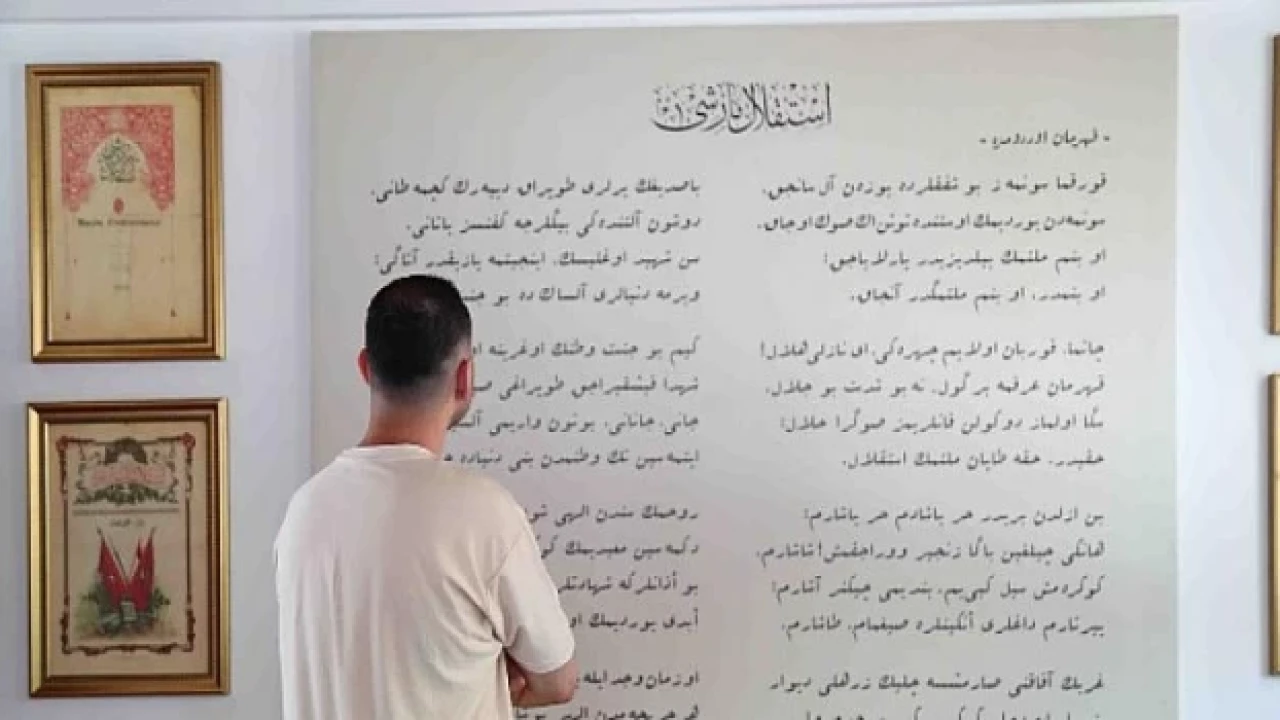 استقلال مارشی
- قهرمان اوردومزه -
قورقما سونمه ز بو شفقلرده یوزن آل سانجق،
سونمه‌دن یوردیمك اوستنده توتن اڭ صوك اوجاق.
او بنم ملتمك ییلدیزیدر پارلایاجق؛
او بنمدر، او بنم ملتمڭدر آنجاق.
چاتما، قوربان اولایم چهره‌كی، ای نازلی هلال!
قهرمان عرقمه بر گول، نه بو شدت بو جلال،
سڭا اولماز دوكولن قانلریمز صوڭرا حلال؛
حقیدر، حقه طاپان ملتمك استقلال.
بن ازلدن بریدر حر یاشادم حر یاشارم؛
هانكی چیلغین باڭا زنجیر ووراجقمش! شاشارم،
كوكره‌مش سیل كبی‌یم، بندیمی چیكنر آشارم؛
ییرتارم داغلری آنگینلره صیغمام، طاشارم.
غربك آفاقنی صارمشسه چلیك زرهلی دیوار
باصدیغك یرلری طوپراق دییه‌رك كچمه طانی،
دوشون آلتنده‌كی بیڭلرجه كفنسز یاتانی،
سن شهید اوغلیسك، اینجیتمه یازیقدر آتاڭی؛
ویرمه دنیالری آلساك ده بو
كیم بو جنت وطنك اوغرینه
شهدا فیشقیراجق طوپراغی
جانی، جانانی، بوتون واریمی
ایتمه‌سین تك وطنمدن بنی دنیاده
روحمك سندن الهی
دكمه‌سین معبدیمك
بو أذانلركه شهادتلر
أبدی یوردیمك
او زمان وجد ایله